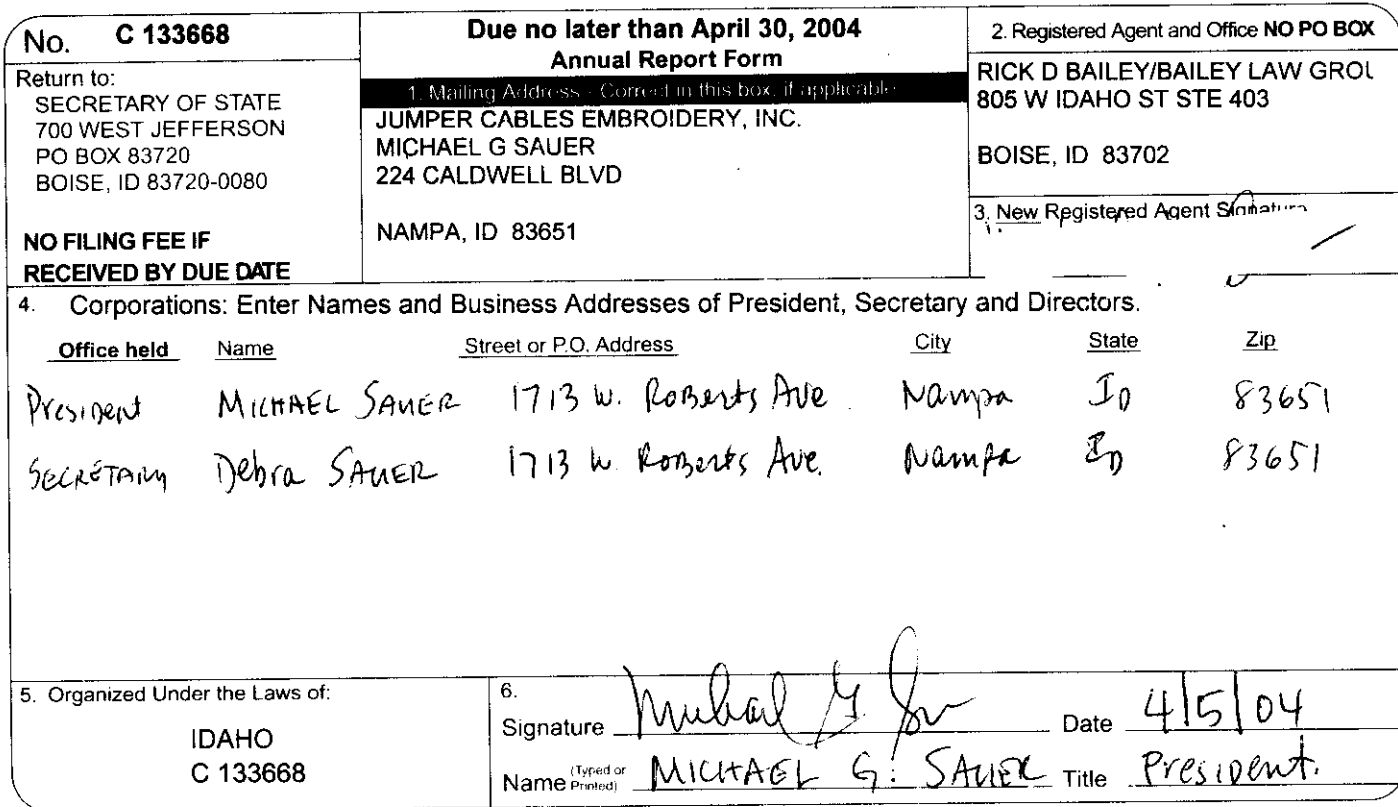 No. C 133668
Return to:
SECRETARY OF STATE
700 WEST JEFFERSON
PO BOX 83720
BOISE, ID 83720-0080
NO FILING FEE IF
RECEIVED BY DUE DATE
Due no later than April 30, 2004
Annual Report Form
1. Mailing Address - Correct in this box, if applicable
JUMPER CABLES EMBROIDERY, INC.
MICHAEL G SAUER
224 CALDWELL BLVD
NAMPA, ID 83651
2. Registered Agent and Office NO PO BOX
RICK D BAILEY/BAILEY LAW GROU
805 W IDAHO ST STE 403
BOISE, ID 83702
3. New Registered Agent Signature
4. Corporations: Enter Names and Business Addresses of President, Secretary and Directors.
Office held Name Street or P.O. Address City State Zip
President MICHAEL SAUER 1713 W. Roberts Ave Nampa ID 83651
SECRETARY Debra SAUER 1713 W. Roberts Ave. Nampa ID 83651
5. Organized Under the Laws of:
IDAHO
C 133668
6.
Signature Michael G Date 4/5/04
Name (Typed or Printed) MICHAEL G. SAUER Title President.